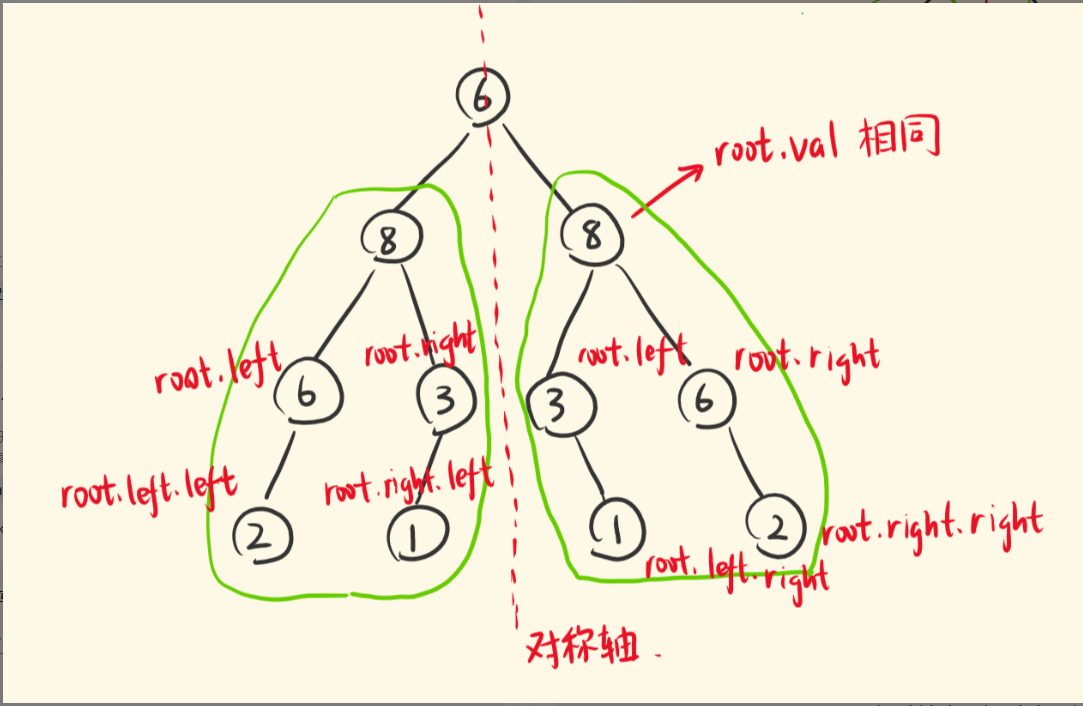 6
root.val 相同
8
8
root.left
root.right
root.left
root.right
6
3
3
6
root.left.left
root.right.left
2
1
1
2
root.right.right
root.left.right
对称轴.